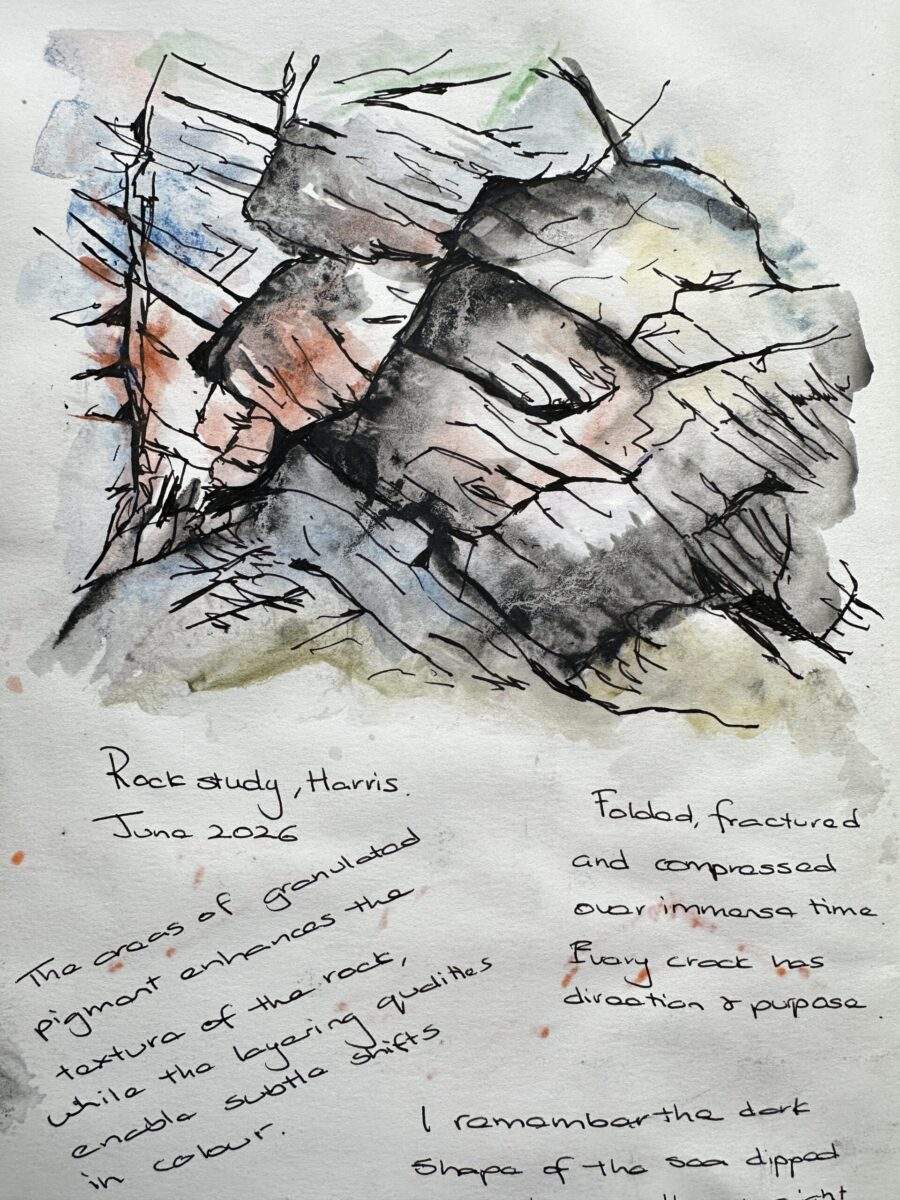 Rock study, Harris.
June 2026
The areas of granulated
pigment enhances the
texture of the rock,
while the layering qualities
enable subtle shifts
in colour.
Folded, fractured
and compressed
over immense time.
Every crack has
direction & purpose
I remember the dark
shape of the sea dipped